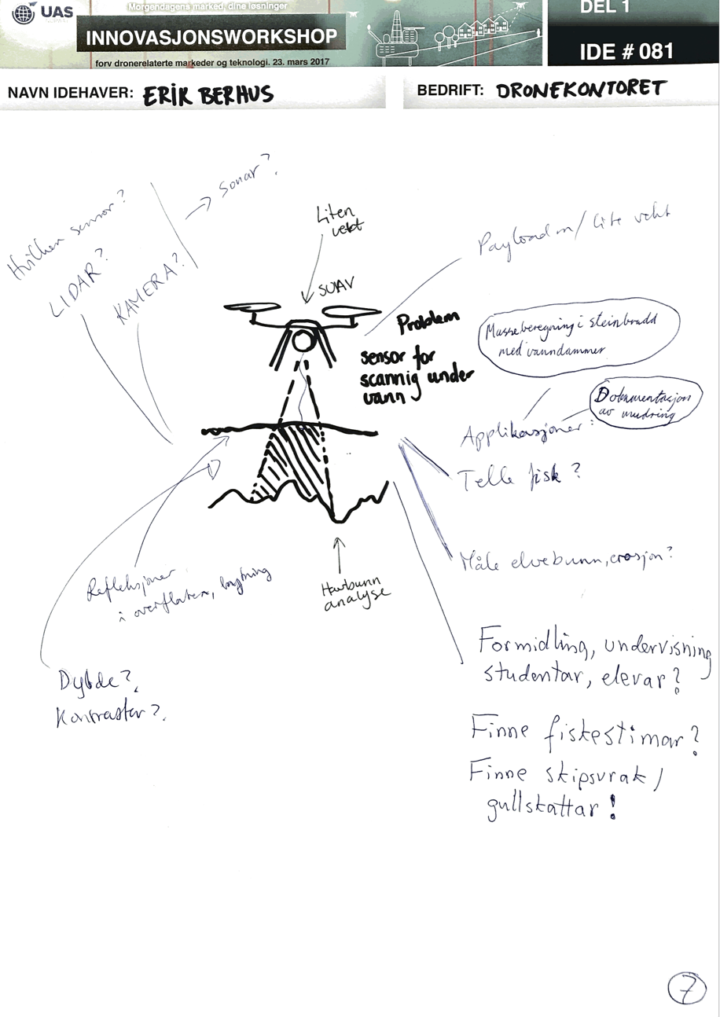 UAS
Morgendagens marked, dine løsninger
INNOVASJONSWORKSHOP
forv dronerelaterte markeder og teknologi. 23. mars 2017
DEL 1
IDE # 081
NAVN IDEHAVER: ERIK BERHUS
BEDRIFT: DRONEKONTORET
Hvilken sensor?
LIDAR?
KAMERA?
→ Sonar?
Liten
vekt
SUAV
Payload m/ lite vekt
Problem
sensor for
scannig under
vann
Masseberegning i steinbrudd
med vanndammer
Dokumentasjon
av mudring
Applikasjoner:
Telle fisk?
Måle elvebunn, erosjon?
Refleksjoner
i overflaten, brytning
Havbunn
analyse
Dybde?
Kontraster?
Formidling, undervisning
studentar, elevar?
Finne fiskestimar?
Finne skipsvrak /
gullskattar!
7